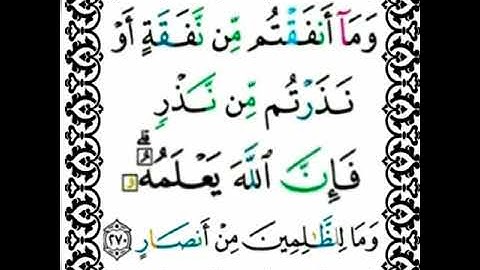 وَمَآ أَنفَقْتُم مِّن نَّفَقَةٍ أَوْ
نَذَرْتُم مِّن نَّذْرٍ
فَإِنَّ ٱللَّهَ يَعْلَمُهُۥ ۗ
وَمَا لِلظَّـٰلِمِينَ مِنْ أَنصَارٍ ٢٧٠